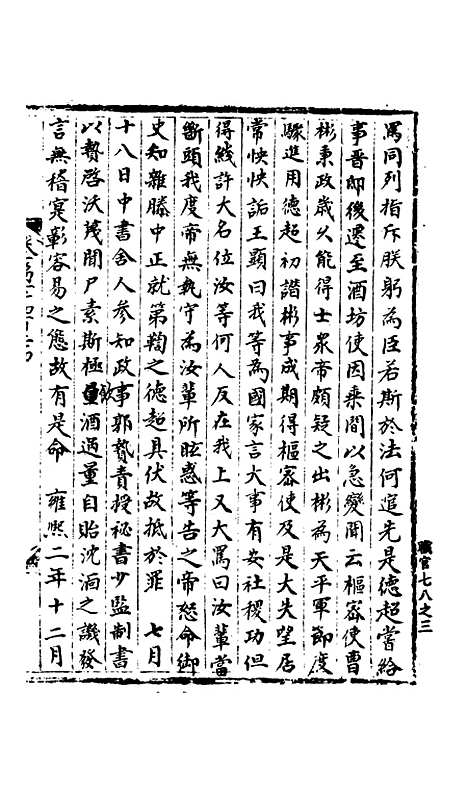 罵同列指斥朕躬為臣若斯於法何逭先是德超嘗給
事晋邸後遷至酒坊使因乗間以急變聞云樞宻使曹
彬秉政歳久能得士衆帝頗疑之出彬為天平軍節度
驟進用德超初譖彬事成期得樞宻使及是大失望居
常怏怏詬王顯曰我等為國家言大事有安社稷功但
得綫許大名位汝等何人反在我上又大罵曰汝輩當
斷頭我度帝無執守為汝輩所眩惑等告之帝怒命御
史知雜滕中正就第鞫之德超具伏故抵於罪　七月
十八日中書舍人參知政事郭贄責授祕書少監制書
以贄啓沃蔑聞尸素斯極飲酒過量自貽沈湎之譏發
言無稽寔彰容易之態故有是命　雍熙二年十二月
職官七八之三